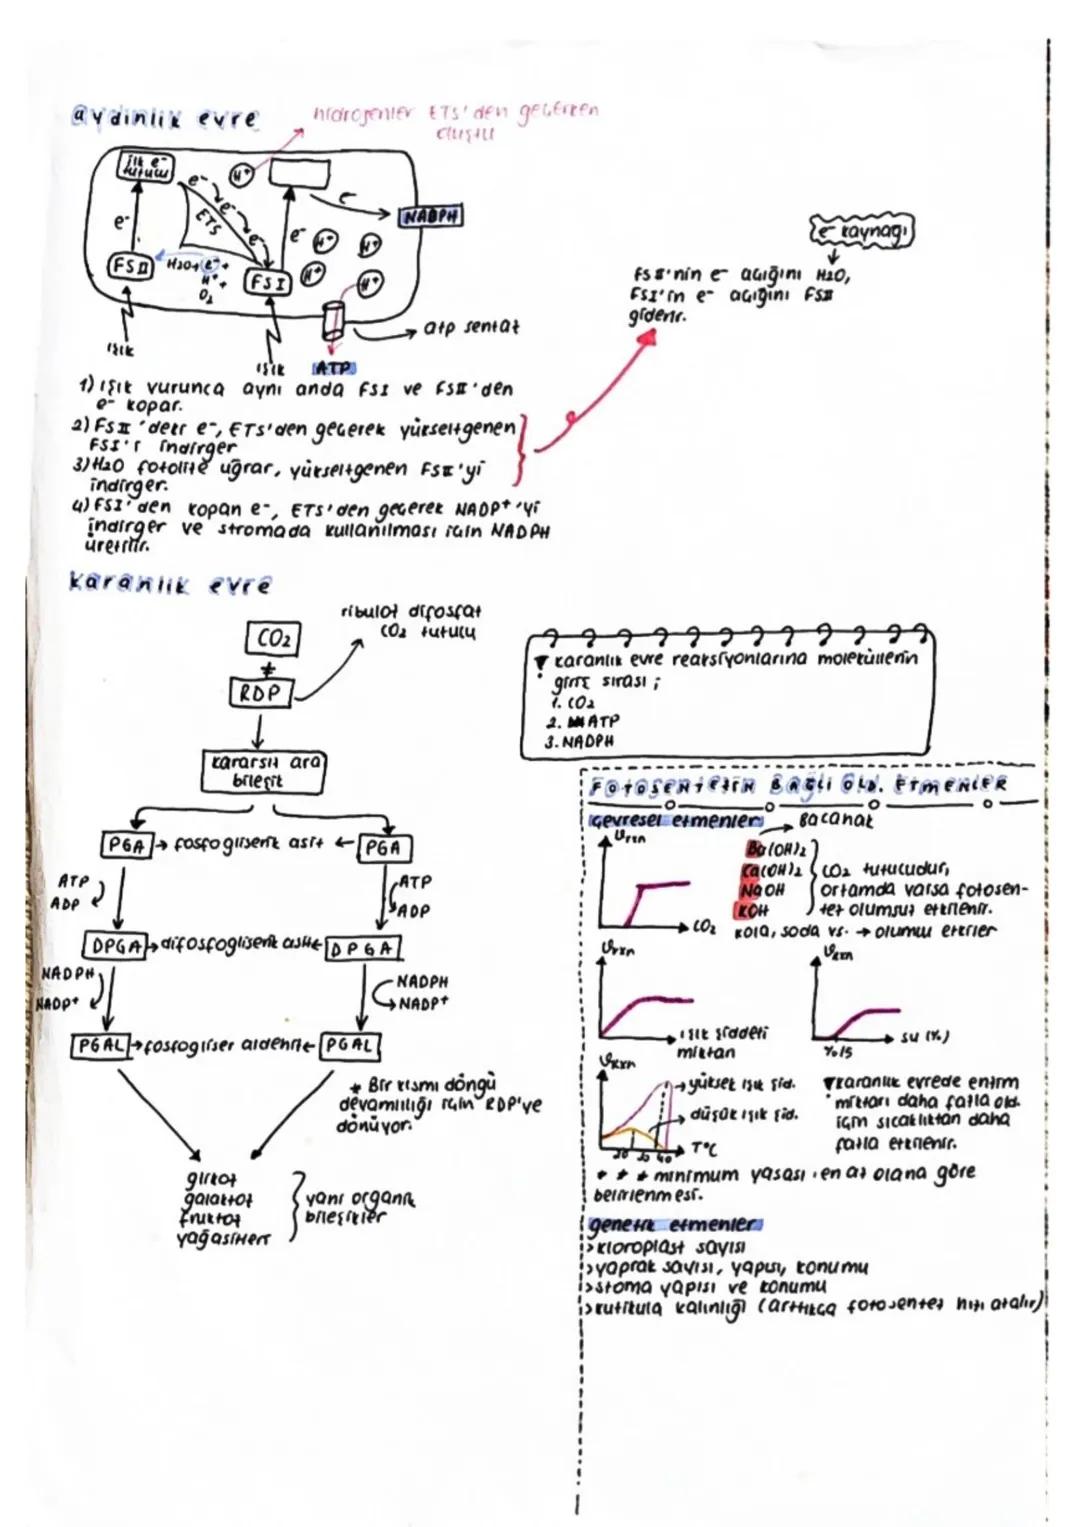 aydınlık evre
hidrojenler ETS'den geçerken
oluştu
ilk e-
tutucu
H+
e-
e-
e-
e-
ETS
e-
e-
NADPH
FS II
H2O → e- +
H+ +
O2
FS I
H+
H+
H+
H+
ışık
ışık
ATP
atp sentaz
e- kaynağı
FS II'nin e- açığını H2O,
FSI'in e- açığını FSII
giderir.
1) ışık vurunca aynı anda FSI ve FSII'den
e- kopar.
2) FSII'deki e-, ETS'den geçerek yükseltgenen
FSI'i indirger
3) H2O fotolize uğrar, yükseltgenen FSII'yi
indirger.
4) FSI'den kopan e-, ETS'den geçerek NADP+'yi
indirger ve stromada kullanılması için NADPH
üretilir.
karanlık evre
CO2
+
RDP
ribuloz difosfat
CO2 tutucu
kararsız ara
bileşik
PGA → fosfogliserik asit ← PGA
ATP
ADP
ATP
ADP
DPGA → difosfogliserik asit ← DPGA
NADPH
NADP+
NADPH
NADP+
PGAL → fosfogliser aldehit ← PGAL
* Bir kısmı döngü
devamlılığı için RDP'ye
dönüyor.
glikoz
galaktoz
fruktoz
yağasitleri
yani organik
bileşikler
▼ karanlık evre reaksiyonlarına moleküllerin
giriş sırası ;
1. CO2
2. ATP
3. NADPH
FOTOSENTEZİN BAĞLI OLD. ETMENLER
çevresel etmenler
→ Bacanak
Vrxn
CO2
Ba(OH)2
Ca(OH)2
NaOH
KOH
CO2 tutucudur,
ortamda varsa fotosen-
tez olumsuz etkilenir.
kola, soda vs. → olumlu etkiler
Vrxn
ışık şiddeti
miktarı
Vrxn
%15
su (%)
Vrxn
→ yüksek ışık şid.
→ düşük ışık şid.
T°C
▼karanlık evrede enzim
miktarı daha fazla old.
için sıcaklıktan daha
fazla etkilenir.
* * * minimum yasası: en az olana göre
belirlenmesi.
genetik etmenler
> kloroplast sayısı
> yaprak sayısı, yapısı, konumu
> stoma yapısı ve konumu
> kutikula kalınlığı (arttıkça fotosentez hızı azalır)